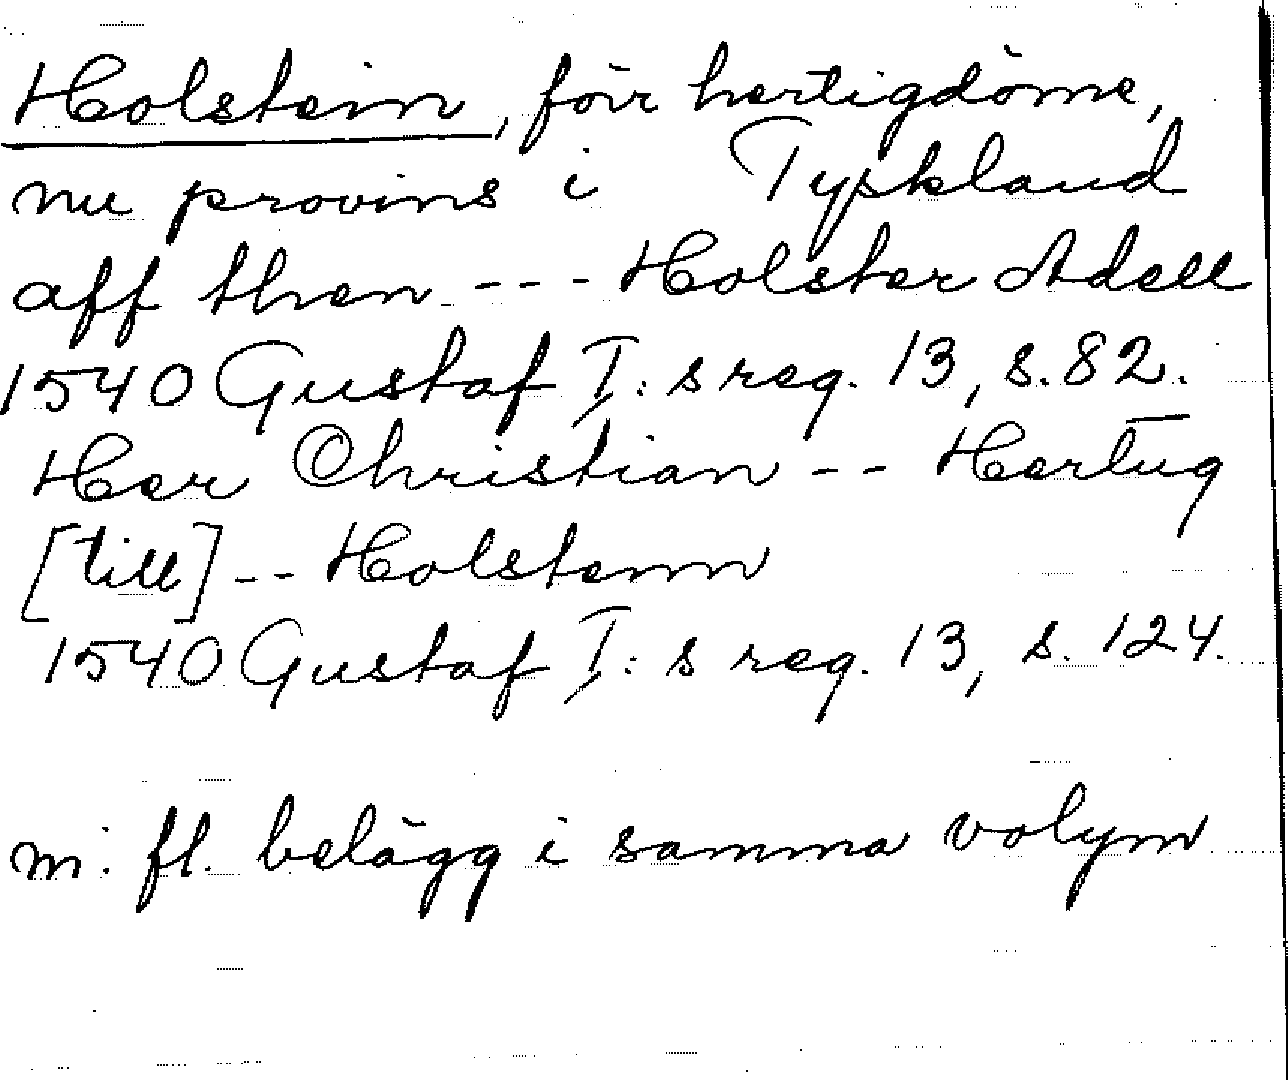 Holstein, förr hertigdöme,
nu provins i Tyskland
aff then --- Holster Adell
1540 Gustaf I:s reg. 13, s. 82.
Her Christian -- Hertug
[till] -- Holstenn
1540 Gustaf I:s reg. 13, s. 124.
m. fl. belägg i samma volym